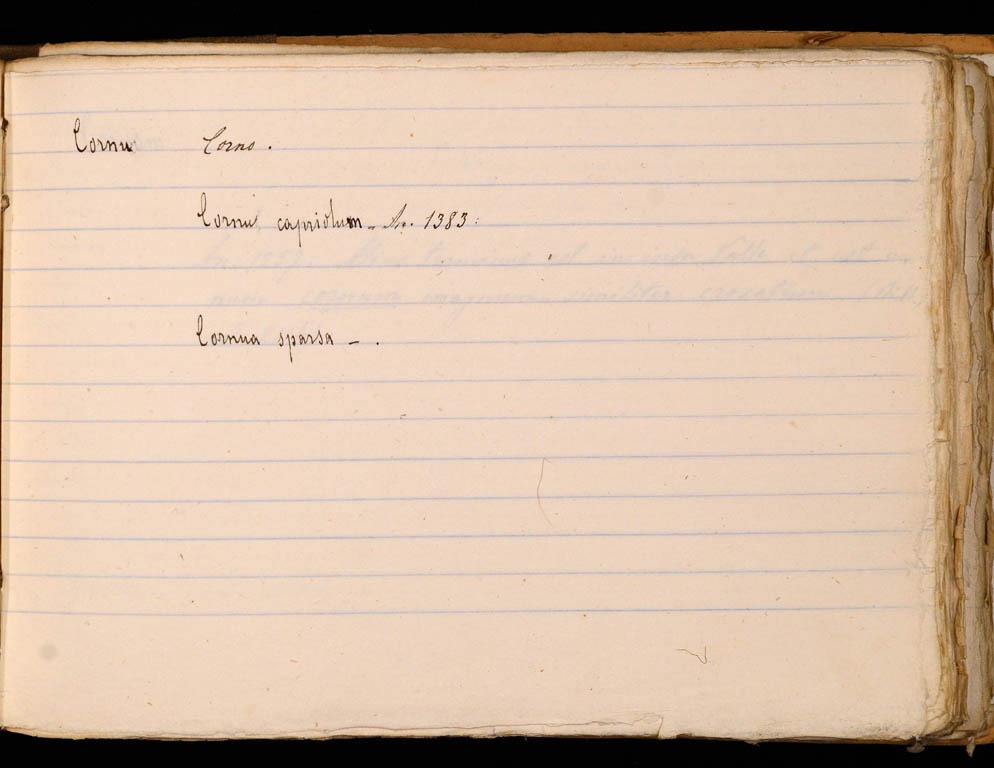 Cornu Corno.
Cornu capriolum - An. 1383.
Cornua sparsa - .